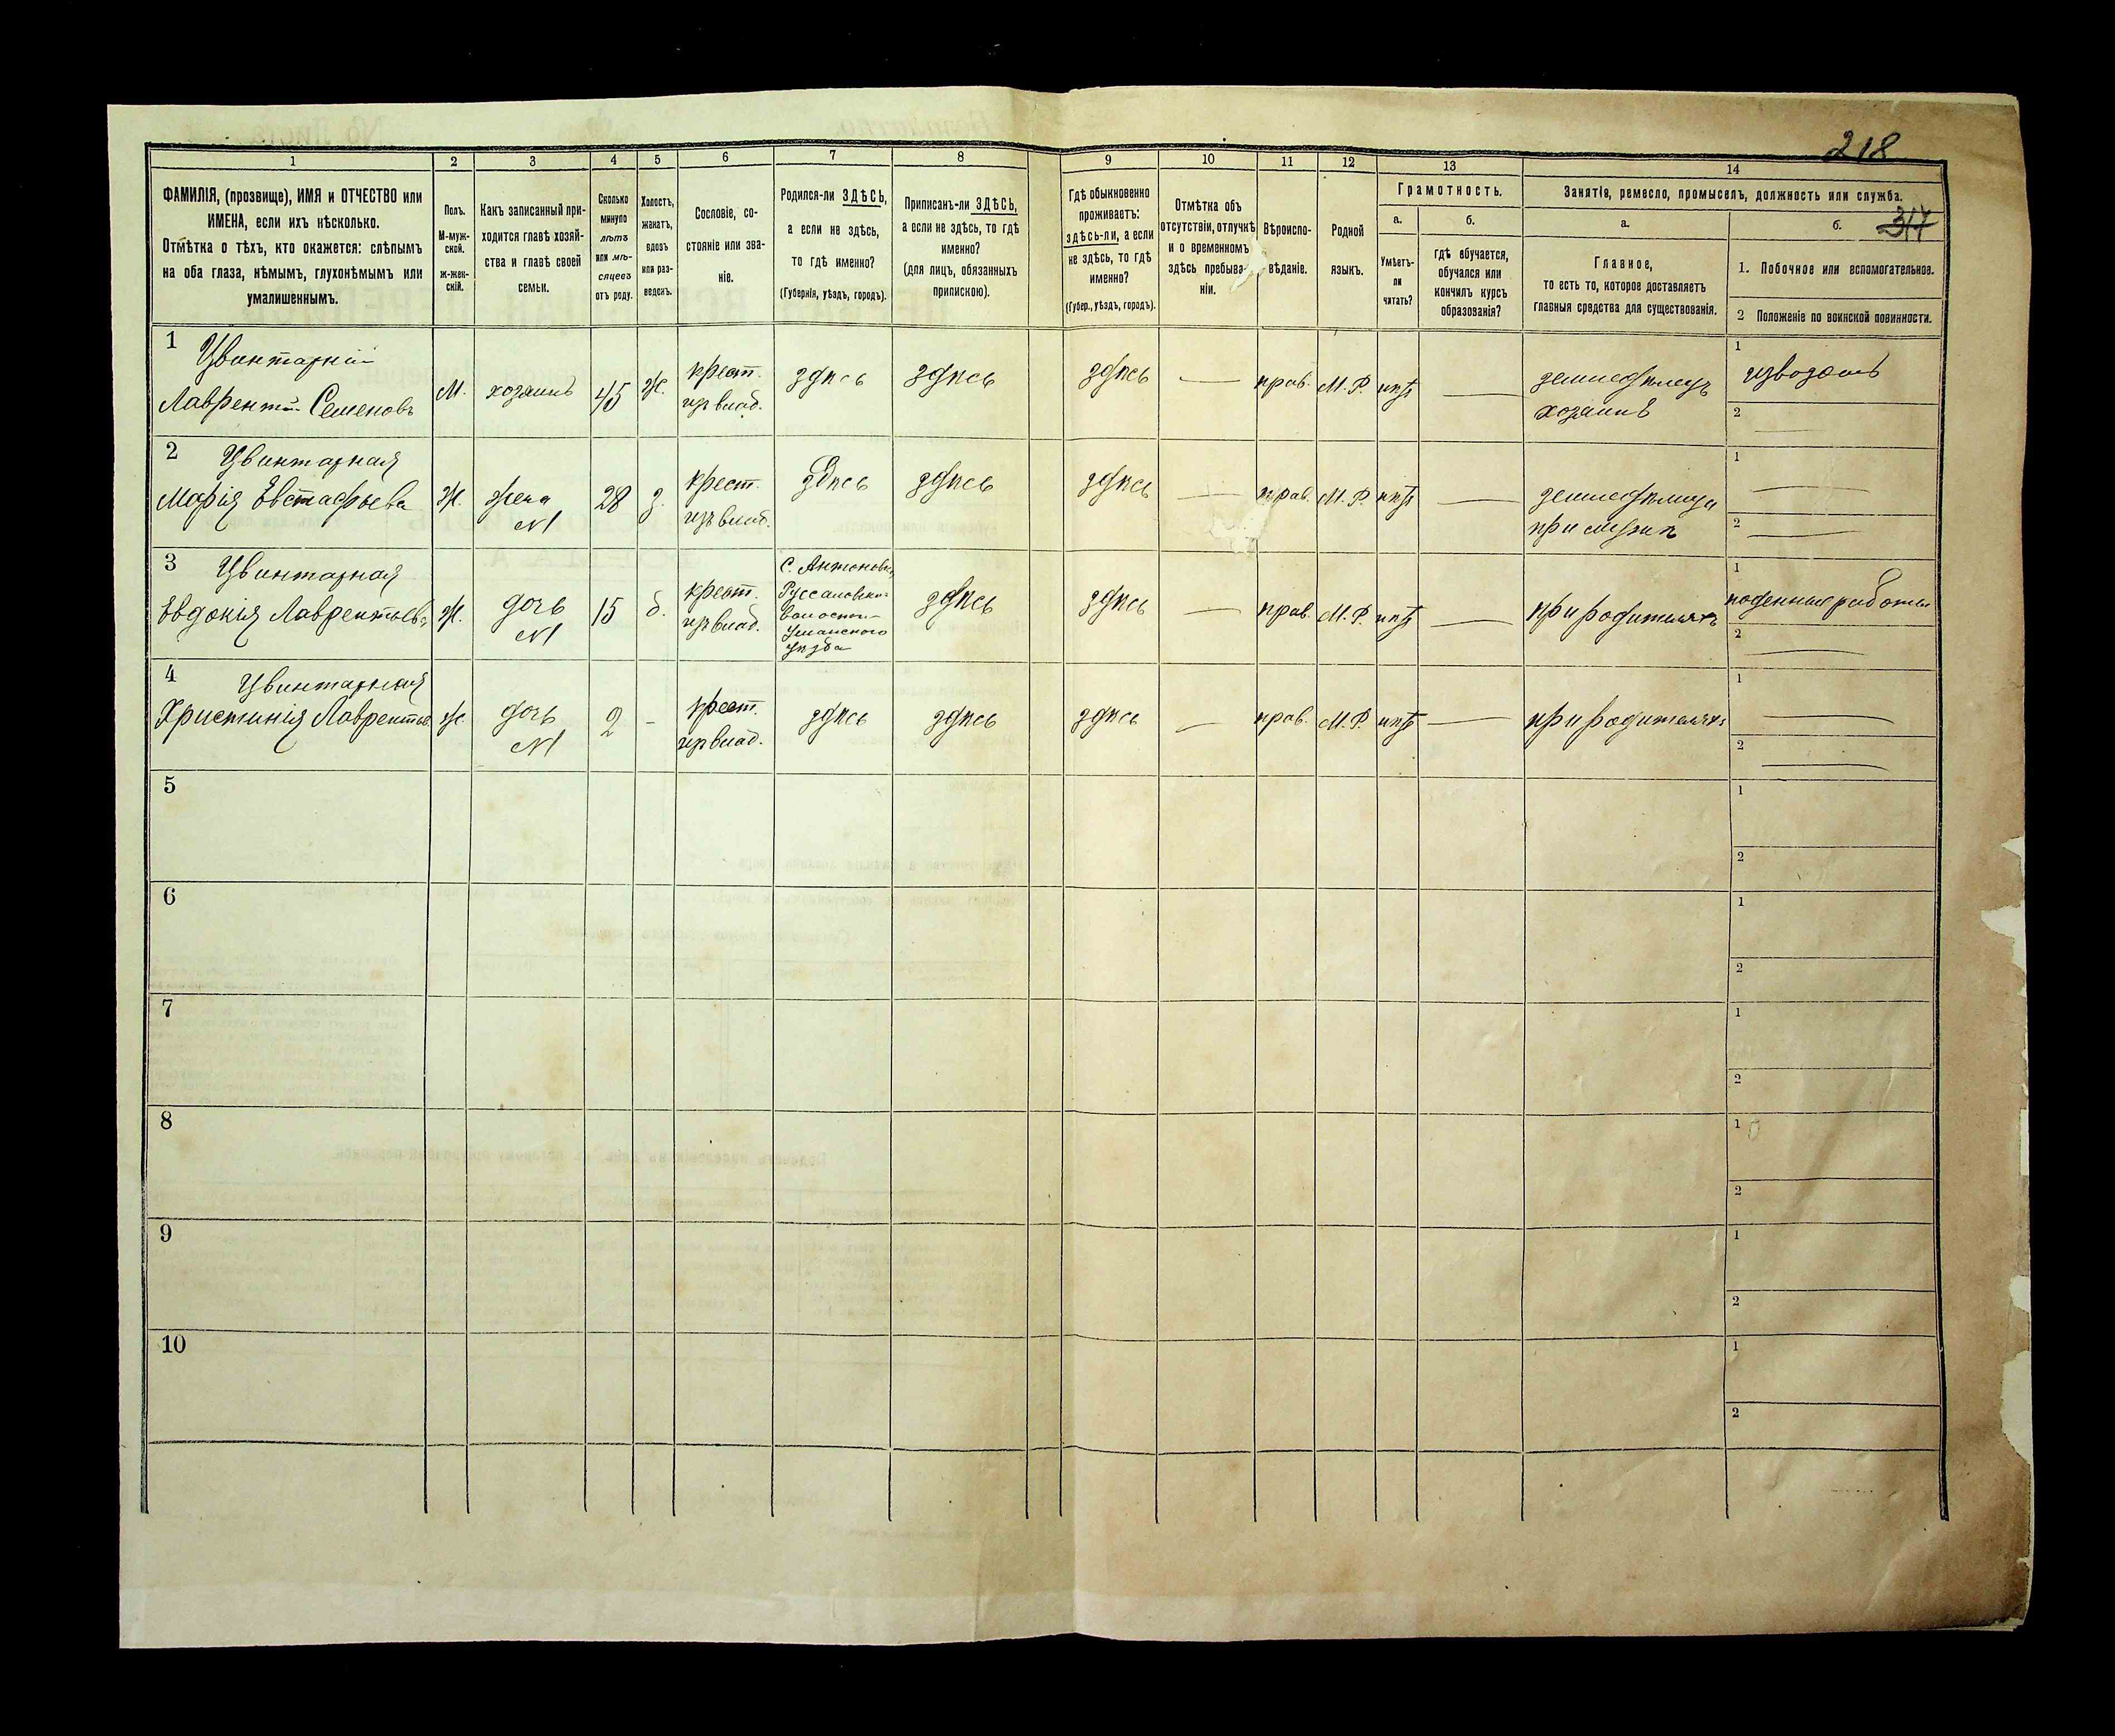 218
317
1 2 3 4 5 6 7 8 9 10 11 12 13 14
ФАМИЛІЯ, (прозвище), ИМЯ и ОТЧЕСТВО или
ИМЕНА, если ихъ нѣсколько.
Отмѣтка о тѣхъ, кто окажется: слѣпымъ
на оба глаза, нѣмымъ, глухонѣмымъ или
умалишеннымъ.
Полъ.
М-муж-
ской.
ж-жен-
скій.
Какъ записанный при-
ходится главѣ хозяй-
ства и главѣ своей
семьи.
Сколько
минуло
лѣтъ
или мѣ-
сяцевъ
отъ роду.
Холостъ,
женатъ,
вдовъ
или раз-
веденъ.
Сословіе, со-
стояніе или зва-
ніе.
Родился-ли ЗДѢСЬ,
а если не здѣсь,
то гдѣ именно?
(Губернія, уѣздъ, городъ).
Приписанъ-ли ЗДѢСЬ,
а если не здѣсь, то гдѣ
именно?
(для лицъ, обязанныхъ
припискою).
Гдѣ обыкновенно
проживаетъ:
здѣсь-ли, а если
не здѣсь, то гдѣ
именно?
(Губер., уѣздъ, городъ).
Отмѣтка объ
отсутствіи, отлучкѣ
и о временномъ
здѣсь пребыва-
ніи.
Вѣроиспо-
вѣданіе.
Родной
языкъ.
Грамотность.
а.
Умѣетъ-
ли
читать?
б.
гдѣ обучается,
обучался или
кончилъ курсъ
образованія?
Занятія, ремесло, промыселъ, должность или служба.
а.
Главное,
то есть то, которое доставляетъ
главныя средства для существованія.
б.
1. Побочное или вспомогательное.
2 Положеніе по воинской повинности.
1 Цвинтарній
Лаврентій Семеновъ
М.
хозяинъ
45
ж.
крест.
изъ влад.
здѣсь
здѣсь
здѣсь
—
прав.
М. Р.
нѣтъ
—
земледѣлецъ
хозяинъ
1
извозомъ
2
—
2 Цвинтарная
Марія Евстафьева
Ж.
жена
№1
28
з.
крест.
изъ влад.
здѣсь
здѣсь
здѣсь
—
прав.
М. Р.
нѣтъ
—
земледѣлица
при мужѣ
1
—
2
—
3 Цвинтарная
Евдокія Лаврентьева
Ж.
дочь
№1
15
д.
крест.
изъ влад.
С. Антоновка
волости
Уманского
уѣзда
здѣсь
здѣсь
—
прав.
М. Р.
нѣтъ
—
при родителяхъ
1
поденные работы
2
—
4 Цвинтарная
Христинія Лаврентьев.
Ж.
дочь
№1
2
-
крест.
изъ влад.
здѣсь
здѣсь
здѣсь
—
прав.
М. Р.
нѣтъ
—
при родителяхъ
1
—
2
—
5
1
2
6
1
2
7
1
2
8
1
2
9
1
2
10
1
2